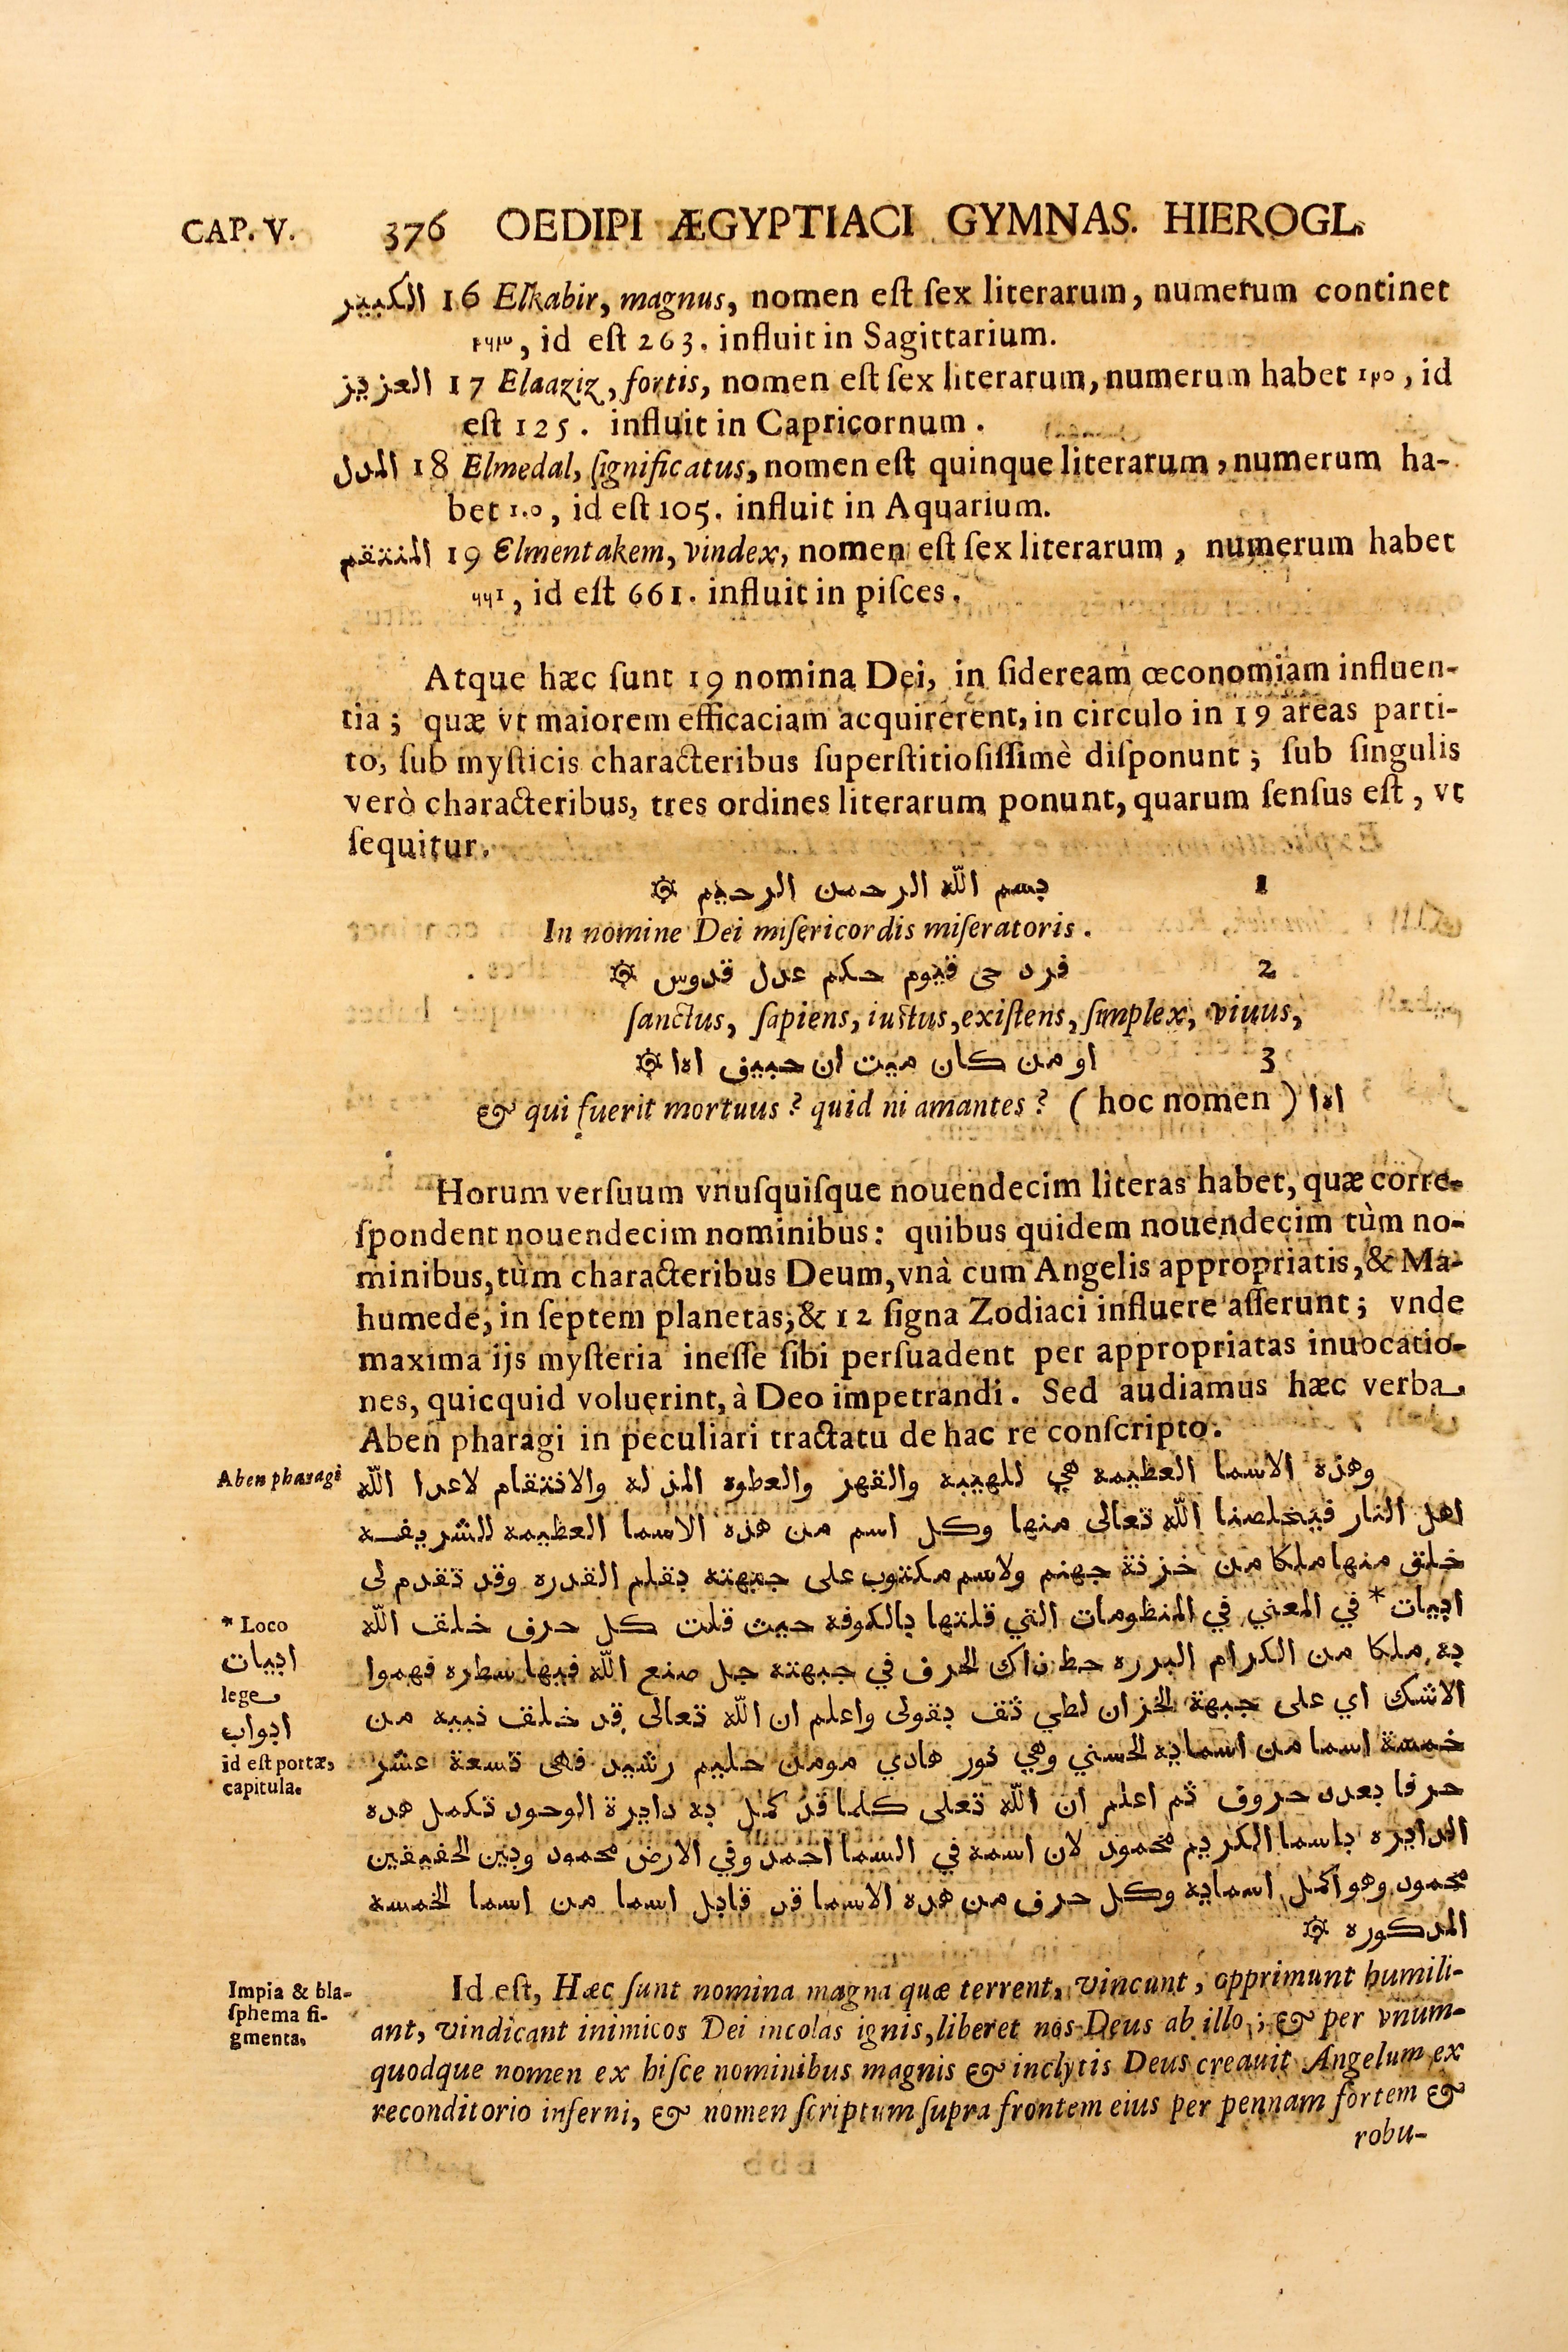 CAP. V. 376 OEDIPI ÆGYPTIACI GYMNAS. HIEROGL.
الكبير 16 Elkabir, magnus, nomen est sex literarum, numerum continet
٢٦٣, id est 263. influit in Sagittarium.
العزيز 17 Elaaziz, fortis, nomen est sex literarum, numerum habet ١٢٥, id
est 125. influit in Capricornum.
المدل 18 Elmedal, significatus, nomen est quinque literarum, numerum ha-
bet ١٠٥, id est 105. influit in Aquarium.
المنتقم 19 Elmentakem, vindex, nomen est sex literarum, numerum habet
٦٦١, id est 661. influit in pisces.
Atque hæc sunt 19 nomina Dei, in sideream œconomiam influen-
tia; quæ vt maiorem efficaciam acquirerent, in circulo in 19 areas parti-
to, sub mysticis characteribus superstitiosissimè disponunt; sub singulis
verò characteribus, tres ordines literarum ponunt, quarum sensus est, vt
sequitur.
1 بسم اللّه الرحمن الرحيم ۞
In nomine Dei misericordis miseratoris.
2 فرد حى قيوم حكم عدل قدوس ۞
sanctus, sapiens, iustus, existens, simplex, viuus,
3 او من كان ميت ان حبيف اها ۞
& qui fuerit mortuus? quid ni amantes? (hoc nomen) اها
Horum versuum vnusquisque nouendecim literas habet, quæ corre-
spondent nouendecim nominibus: quibus quidem nouendecim tùm no-
minibus, tùm characteribus Deum, vnà cum Angelis appropriatis, & Ma-
humede, in septem planetas, & 12 signa Zodiaci influere asserunt; vnde
maxima ijs mysteria inesse sibi persuadent per appropriatas inuocatio-
nes, quicquid voluerint, à Deo impetrandi. Sed audiamus hæc verba
Aben pharagi in peculiari tractatu de hac re conscripto.
Aben pharagi
وهذه الاسما العظيمه هي للهيبه والقهر والعطوه المذله والانتقام لاعدا اللّه
اهل النار فيخلصنا اللّه تعالى منها وكل اسم من هذه الاسما العظيمه الشريفه
خلق منها ملكا من خزنة جهنم ولاسم مكتوب على جبهته بقلم القدره وقد تقدم لى
ابيات * في المعني في المنظومات التي قلتها بالكوفه حيث قلت كل حرف خلف اللّه
به ملكا من الكرام البرره حط ذاك الحرف في جبهته جل صنع اللّه فيها سطره فهموا
الاشك اي على جبهة الخزان لطي ثف بقولى واعلم ان اللّه تعالى قد خلف نبيه من
خمسة اسما من اسمايه الحسني وهي نور هادي مومن حليم رشيد فهى تسعة عشر
حرفا بعدد حروف ثم اعلم ان اللّه تعلى كلما قد كمل به دايرة الوحود تكمل هده
الدايره باسما الكريم محمود لان اسمه في السما احمد وفي الارض محمود وبين الحفيفين
محمود وهو اكمل اسمايه وكل حرف من هده الاسما قد قابل اسما من اسما الخمسه
المدكوره ۞
* Loco
ابيات
lege
ابواب
id est portæ,
capitula.
Impia & bla-
sphema fi-
gmenta.
Id est, Hæc sunt nomina magna quæ terrent, vincunt, opprimunt humili-
ant, vindicant inimicos Dei incolas ignis, liberet nos Deus ab illo; & per vnum-
quodque nomen ex hisce nominibus magnis & inclytis Deus creauit Angelum ex
reconditorio inferni, & nomen scriptum supra frontem eius per pennam fortem &
robu-